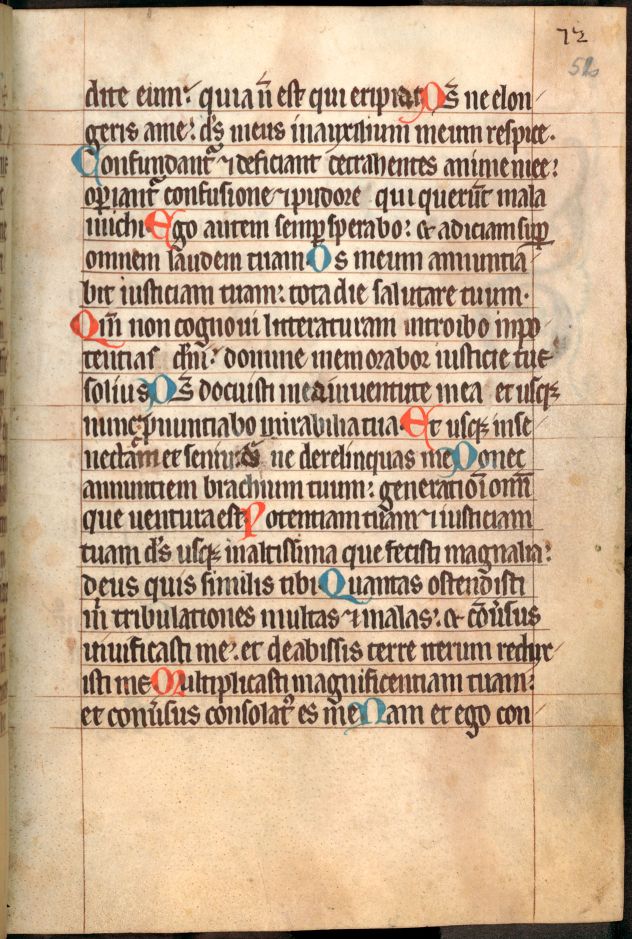 72
52
dite eum: quia ñ est qui eripiat Ds̄ ne elon
geris a me: ds̄ meus in auxilium meum respice.
Confundant᷑ ⁊ deficiant detrahentes anime mee:
opiant᷑ confusione ⁊ pudore qui querūt mala
michi Ego autem semp̱ sperabo: et adiciam sup̱
omnem laudem tuam Os meum annuntia
bit iusticiam tuam: tota die salutare tuum.
Qm̄ non cognoui litteraturam introibo in po
tentias dn̄i: domine memorabor iusticie tue
solius Ds̄ docuisti me a iuuentute mea et usqꝫ
nunc ꝓnuntiabo mirabilia tua Et usqꝫ in se
nectām et senium: ds̄ ne derelinquas me Donec
annuntiem brachium tuum: generatiōi omī
que uentura est Potentiam tuam ⁊ iusticiam
tuam ds̄ usqꝫ in altissima que fecisti magnalia:
deus quis similis tibi Quantas ostendisti
m̄ tribulationes multas ⁊ malas: et cōu̓sus
uiuificasti me: et de abissis terre iterum redux
isti me Multiplicasti magnificentiam tuam:
et conu̓sus consolatꝰ es me Nam et ego con